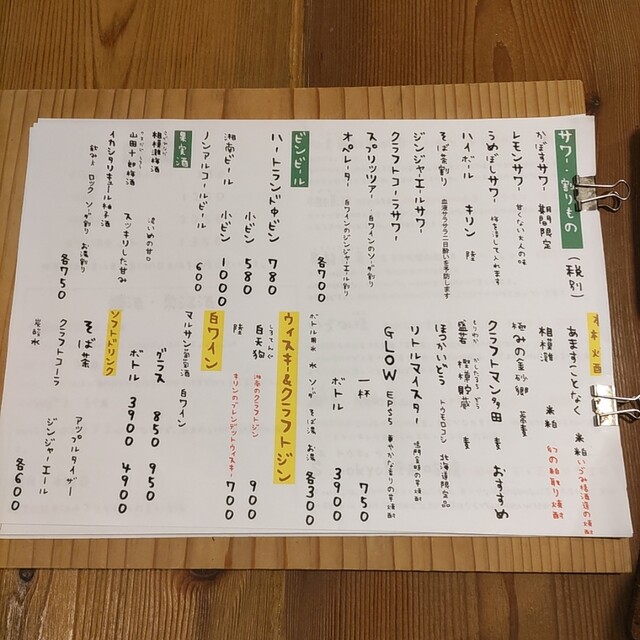 サワー・割りもの (税別)
かぼすサワー 期間限定
レモンサワー 甘くない大人の味
うめぼしサワー 梅を潰して入れます
ハイボール キリン 陸
そば茶割り 血液サラサラ二日酔いを予防します
ジンジャエールサワー
クラフトコーラサワー
スプリッツァー 白ワインのソーダ割り
オペレーター 白ワインのジンジャエール割り
各700
ビンビール
ハートランド中ビン 780
小ビン 580
湘南ビール 小ビン 1000
ノンアルコールビール 600
果実酒
相模灘梅酒 濃いめの甘口
山田十郎梅酒 スッキリした甘み
イカシタリキュール柚子酒
飲み方 ロック ソーダ割り お湯割り
各750
本格焼酎
あますことなく 米粕 いづみ橋酒造の焼酎
相模灘 米粕 幻の粕取り焼酎
極みの金砂郷 蕎麦
クラフトマン多田 麦 おすすめ
盛若 樫樽貯蔵 麦
ほっかいどう トウモロコシ 北海道限定品
リトルマイスター 鳴門金時の芋焼酎
GLOW EP05 華やかな香りの芋焼酎
一杯 750
ボトル 3900
ボトル用 氷 水 ソーダ そば茶 お湯 各300
ウィスキー&クラフトジン
白天狗 湘南のクラフトジン 900
陸 キリンのブレンデッドウィスキー 700
白ワイン
マルサン葡萄酒 白ワイン
グラス 850 950
ボトル 3900 4900
ソフトドリンク
そば茶 アップルタイザー
クラフトコーラ ジンジャーエール
炭酸水
各600